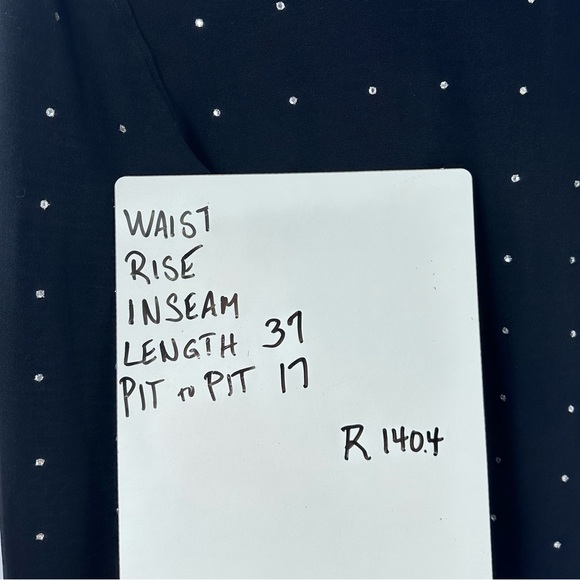 WAIST
RISE
INSEAM
LENGTH 37
PIT to PIT 17
R 140.4